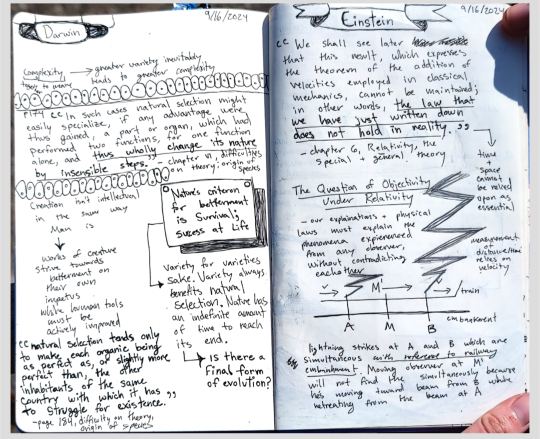 9/16/2024
Darwin
Complexity → greater variety inevitably
tends to greater complexity
P174 "In such cases natural selection might
easily specialise, if any advantage were
thus gained, a part or organ, which had
performed two functions, for one function
alone, and thus wholly change its nature
by insensible steps."
- chapter VI, difficulties
on theory, origin of
species
Creation isn't intellectual
in the same way
Man is.
works of creature
strive towards
betterment on
their own
impetus
while human tools
must be
actively improved
Nature's criterion
for betterment
is Survival;
sucess at Life
Variety for varieties
sake. Variety always
benefits natural
Selection. Nature has
an indefinite amount
of time to reach
its end.
Is there a
final form
of evolution?
"natural selection tends only
to make each organic being
as perfect as, or slightly more
perfect than, the other
inhabitants of the same
country with which it has
to struggle for existence."
-page 184, difficulty on theory,
origin of species
9/16/2024
Einstein
"We shall see later
that this result, which expresses
the theorem of the addition of
velocities employed in classical
mechanics, cannot be maintained;
in other words, the law that
we have just written down
does not hold in reality."
- chapter 6, Relativity, the
special + general theory
time
space
cannot
be relied
upon as
essential
measurement
of distance/time
relies on
velocity
The Question of Objectivity
Under Relativity
- our explanations + physical
laws must explain the
phenomena experienced
from any observer,
without contradicting
eachother
v M' v train
A M B embankment
lightning strikes at A and B which are
simultaneous with reference to railway
embankment. Moving observer at M'
will not find the simultaneously because
he's moving toward beam from B while
retreating from the beam at A